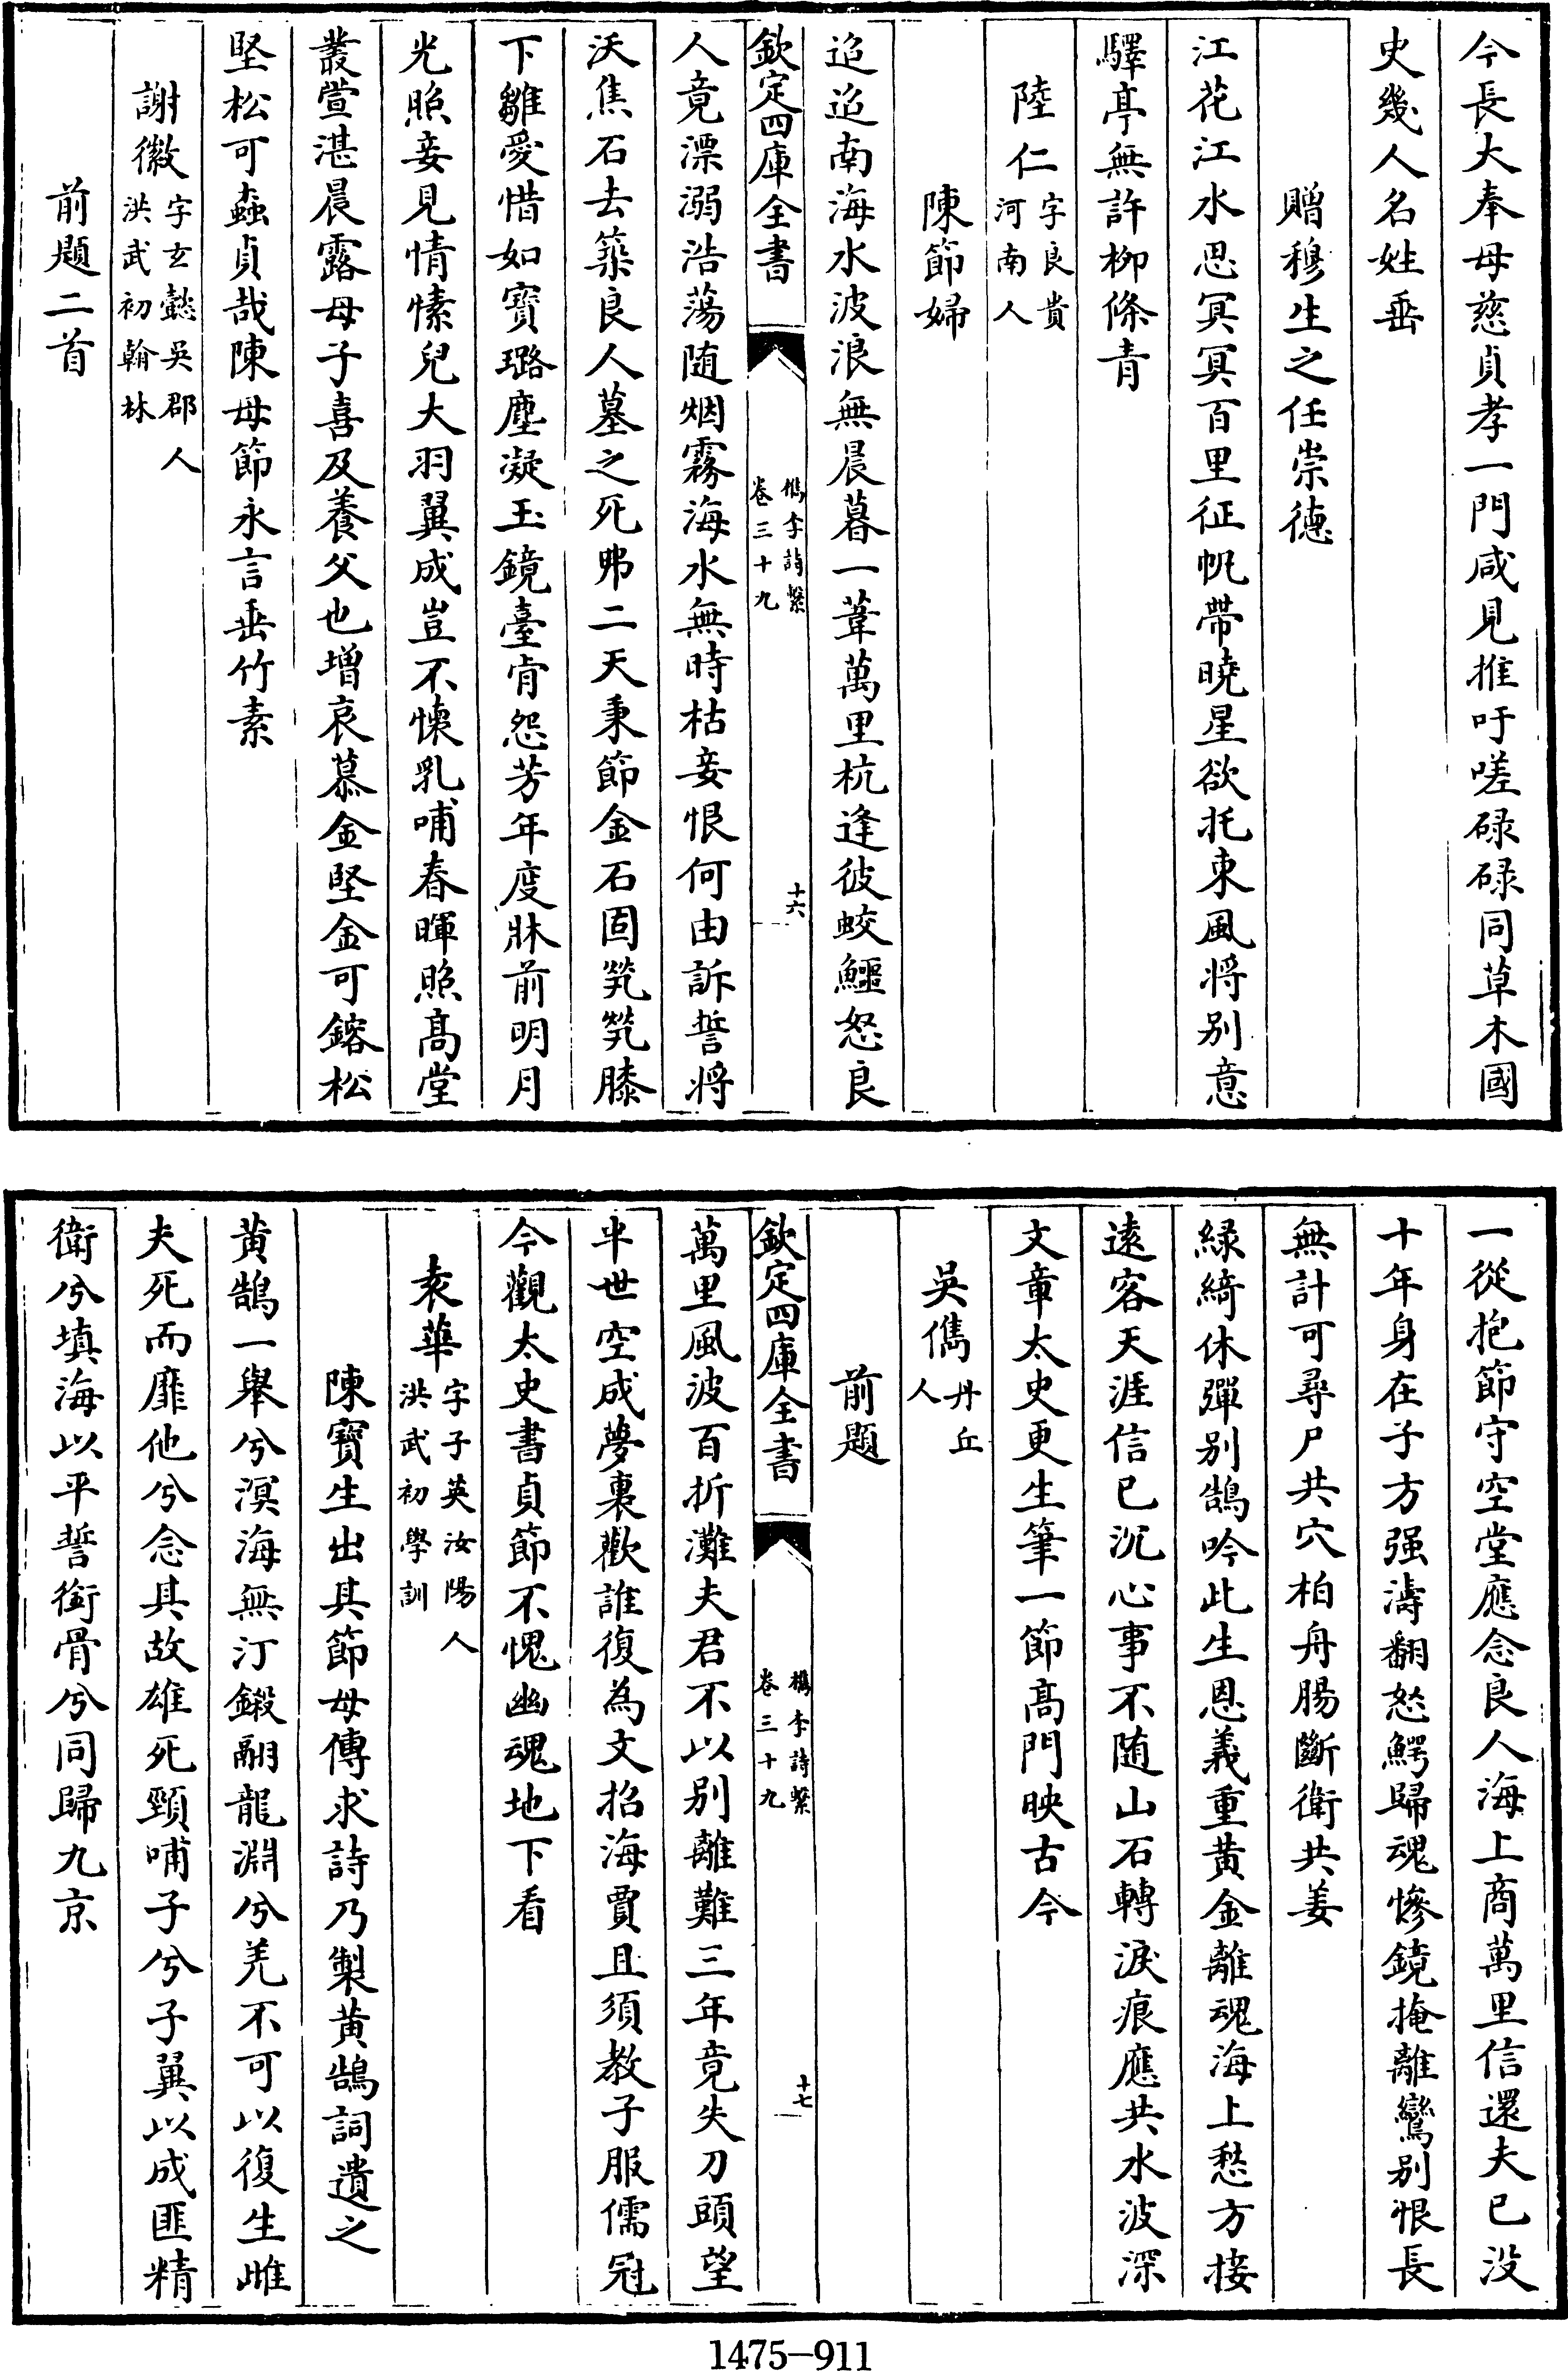 今長大奉母慈貞孝一門咸見推吁嗟碌碌同草木國
史幾人名姓垂
贈穆生之任崇德
江花江水思冥冥百里征帆帶曉星欲托東風将别意
驛亭無許柳條青
陸仁字良貴
河南人
陳節婦
迢迢南海水波浪無晨暮一葦萬里杭逢彼蛟鱷怒良
欽定四庫全書
檇李詩繫
卷三十九
十六
人竟漂溺浩蕩随烟霧海水無時枯妾恨何由訴誓将
沃焦石去築良人墓之死弗二天秉節金石固煢煢膝
下雛愛惜如寶璐塵凝玉鏡臺肯怨芳年度牀前明月
光照妾見情愫兒大羽翼成豈不懐乳哺春暉照髙堂
叢萱湛晨露母子喜及養父也增哀慕金堅金可鎔松
堅松可蠹貞哉陳母節永言垂竹素
謝徽字玄懿吳郡人
洪武初翰林
前題二首
一從抱節守空堂應念良人海上商萬里信還夫已没
十年身在子方强濤翻怒鰐歸魂慘鏡掩離鸞别恨長
無計可尋尸共穴柏舟腸斷衛共姜
緑綺休彈别鵠吟此生恩義重黄金離魂海上愁方接
逺客天涯信已沉心事不随山石轉淚痕應共水波深
文章太史更生筆一節髙門映古今
吳儁丹丘
人
前題
欽定四庫全書
檇李詩繫
卷三十九
十七
萬里風波百折灘夫君不以别離難三年竟失刀頭望
半世空成夢裏歡誰復為文招海賈且須教子服儒冠
今觀太史書貞節不愧幽魂地下看
袁華字子英汝陽人
洪武初學訓
陳寶生出其節母傳求詩乃製黄鵠詞遺之
黄鵠一舉兮溟海無汀鎩翮龍淵兮羌不可以復生雌
夫死而靡他兮念其故雄死頸哺子兮子翼以成匪精
衛兮填海以平誓銜骨兮同歸九京
1475-911